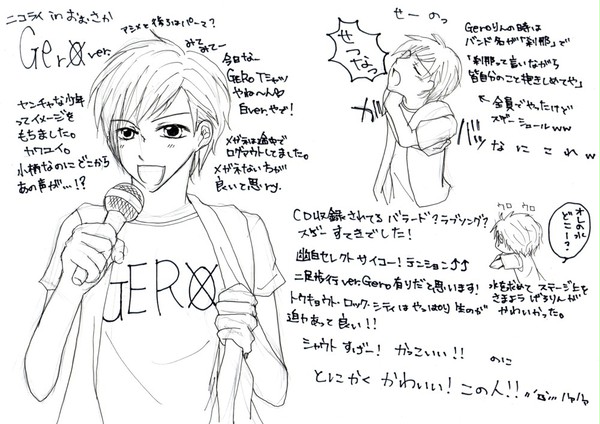 ニコライ in おおさか
Gero ver.
アシメと後ろはパーマ?
みてみてー
今日なー
GERO Tシャツ
やねーん♡
Ever.やで!
ヤンチャな少年
ってイメージを
もちました。
カワユイ。
小柄なのにどこから
あの声が…!?
メガネは途中で
ログアウトしました。
メガネない方が
良いと思ry.
GERO
せーのっ
せつなっ
ガッ
バッ
Geroりんの時は
バンド名が「刹那」で
「刹那って言いながら
皆自分のこと抱きしめてや」
← 全員でやったけど
スゲーシュールww
なにこれw
CD収録されてるバラード?ラブソング?
スゲー すてきでした!
幽白セレクトサイコー!テンション↑↑
二足歩行ver.Gero有りだと思います!
トウキョウト・ロック・シティはやっぱり生のが
迫力あって良い!!
シャウトすげー!かっこいい!!のに
とにかくかわいい!この人!!ハァハァ
ウロ ウロ
オレの水
どこー?
水を求めてステージ上を
さまようげろりんが
かわいかった。